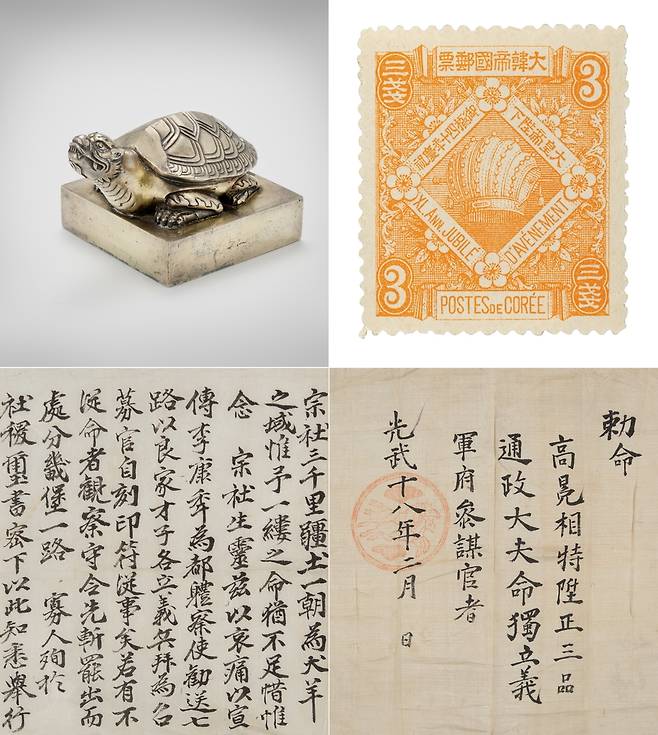 大韓帝國郵票
三錢
3
大皇帝陛下
御極四十年慶祝
XL ANN. JUBILÉ
D'AVÈNEMENT
3
三錢
POSTES DE CORÉE
宗社三千里疆土一朝為犬羊
之域惟予一縷之命猶不足惜惟
念 宗社生靈茲以哀痛以宣
傳李康秊為都體察使勸送七
路以良家才子各立義兵拜為召
募官自刻印符從事矣若有不
從命者觀察守令先斬罷出而
處分畿堡一路 寡人殉於
社稷璽書密下以此知悉舉行
勅命
高晃相特陞正三品
通政大夫命獨立義
軍府參謀官者
光武十八年二月 日